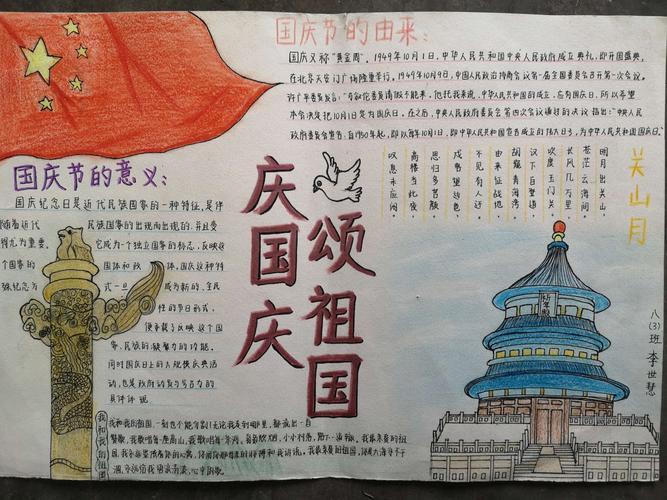 国庆节的由来:
国庆又称"黄金周"。1949年10月1日,中华人民共和国中央人民政府成立典礼,即开国盛典,
在北京天安门广场隆重举行。1949年10月9日,中国人民政治协商会议第一届全国委员会召开第一次会议。
许广平委员发言:"马叙伦委员请假不能来,他托我来说,中华人民共和国的成立,应有国庆日,所以希望
本会决定把10月1日定为国庆日。在之后,中央人民政府委员会第四次会议通过的决议指出:"中央人民
政府委员会宣告:自1950年起,即以每年10月1日,即中华人民共和国宣告成立的伟大日子,为中华人民共和国国庆日。"
国庆节的意义:
国庆纪念日是近代民族国家的一种特征,是伴
随着近代民族国家的出现而出现的,并且变
得尤为重要。它成为一个独立国家的标志,反映这
个国家的国体和政体,国庆这种特
殊纪念方式一旦成为新的、全民
性的节日形式,
便承载了反映这个国
家、民族的凝聚力的功能。
同时国庆日上的大规模庆典活
动,也是政府动员与号召力的
具体体现
庆国庆
颂祖国
关山月
明月出天山,
苍茫云海间。
长风几万里,
吹度玉门关。
汉下白登道,
胡窥青海湾。
由来征战地,
不见有人还。
戍客望边色,
思归多苦颜。
高楼当此夜,
叹息未应闲。
祈年殿
八(3)班 李世慧
我和我的祖国
我和我的祖国,一刻也不能分割!无论我走到哪里,都流出一首
赞歌。我歌唱每一座高山,我歌唱每一条河。袅袅炊烟,小小村落,路上一道辙。我最亲爱的祖
国,